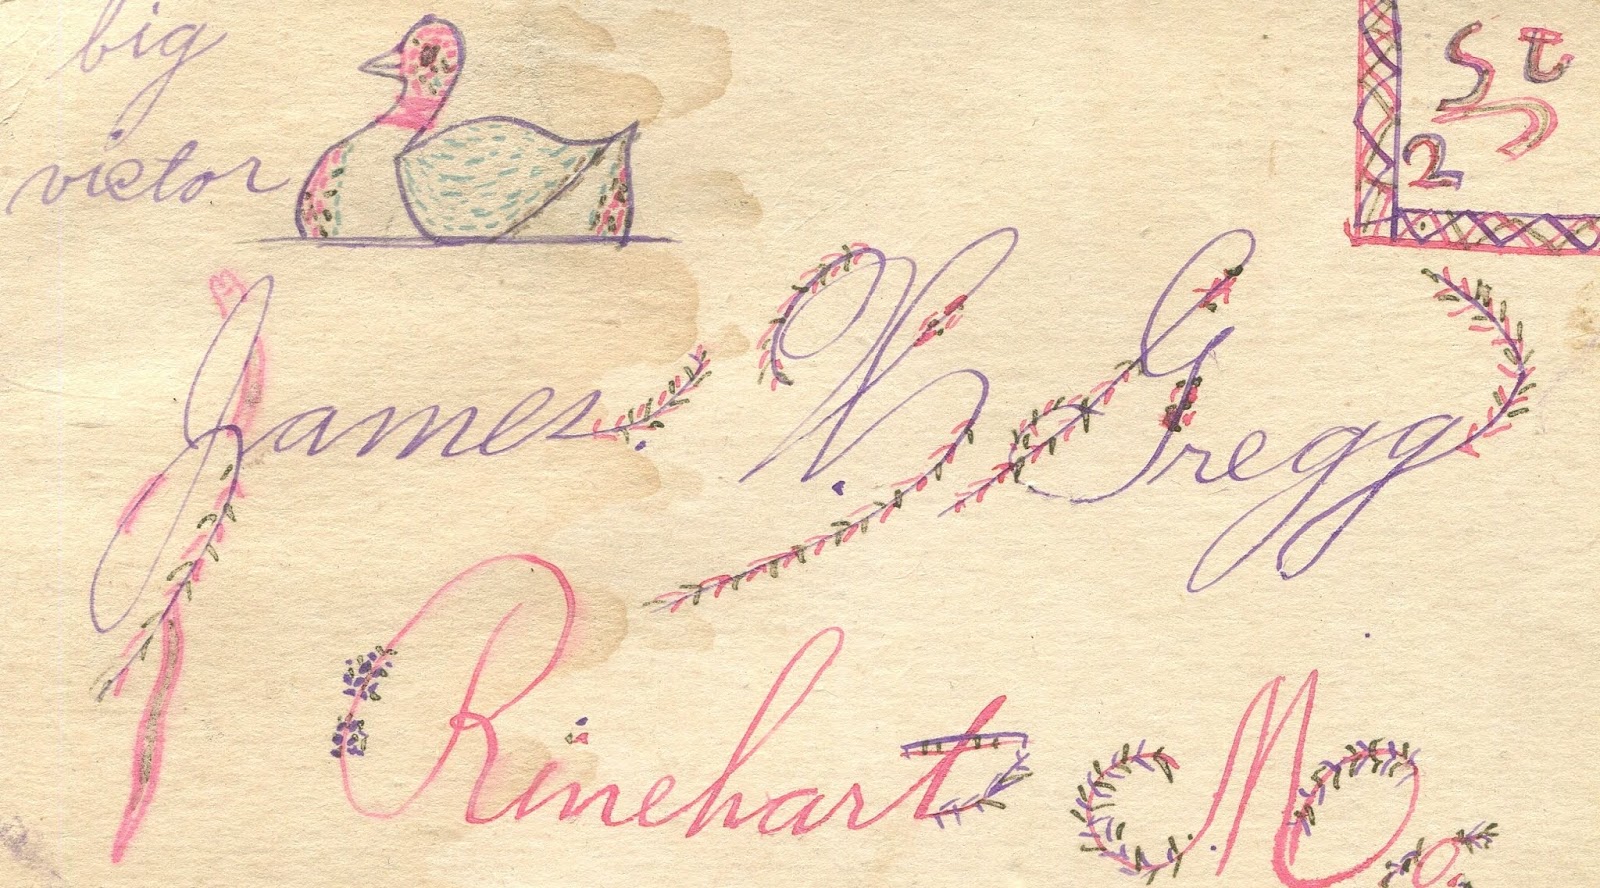 big
victor
St
2
James. W. Gregg
Rinehart Mo.